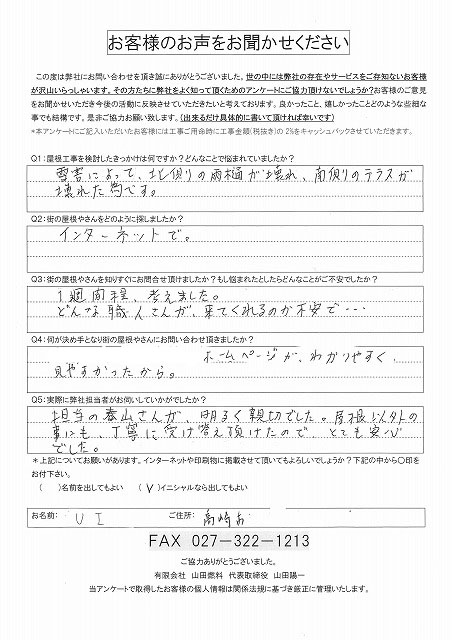 お客様のお声をお聞かせください
この度は弊社にお問い合わせを頂き誠にありがとうございました。世の中には弊社の存在やサービスをご存知ないお客様
が沢山いらっしゃいます。その方たちに弊社をよく知って頂くためのアンケートにご協力頂けないでしょうか?お客様のご意見
をお聞かせいただき今後の活動に反映させていただきたいと考えております。良かったこと、嬉しかったことどのような些細な
事でも結構です。是非ご協力お願い致します。(出来るだけ具体的に書いて頂ければ幸いです)
*本アンケートにご記入いただいたお客様には工事ご用命時に工事金額(税抜き)の 2%をキャッシュバックさせていただきます。
Q1:屋根工事を検討したきっかけは何ですか?どんなことで悩まれていましたか?
雪害によって、北側の雨樋が壊れ、南側のテラスが
壊れた為です。
Q2:街の屋根やさんをどのように探しましたか?
インターネットで。
Q3:街の屋根やさんを知りすぐにお問合せ頂けましたか?もし悩まれたとしたらどんなことがご不安でしたか?
1週間程、考えました。
どんな職人さんが、来てくれるのか不安で…
Q4:何が決め手となり街の屋根やさんにお問い合わせ頂きましたか?
ホームページが、わかりやすく、
見やすかったから。
Q5:実際に弊社担当者がお伺いしていかがでしたか?
担当の春山さんが、明るく親切でした。屋根以外の
事にも、丁寧に受け答え頂けたので、とても安心
でした。
*上記についてお願いがあります。インターネットや印刷物に掲載させて頂いてもよろしいでしょうか?下記の中から〇印を
お付下さい。
( )名前を出してもよい (V)イニシャルなら出してもよい
お名前: U I ご住所: 高崎市
FAX 027-322-1213
ご協力ありがとうございました。
有限会社 山田燃料 代表取締役 山田陽一
当アンケートで取得したお客様の個人情報は関係法規に基づき厳正に管理いたします。